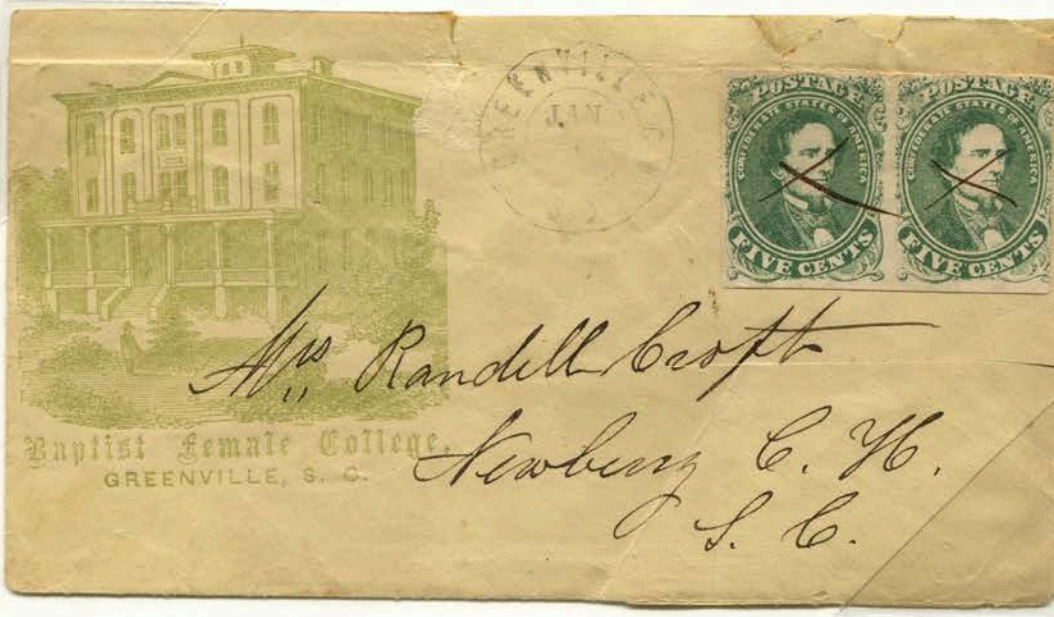 GREENVILLE
JAN
POSTAGE
CONFEDERATE STATES OF AMERICA
FIVE CENTS
POSTAGE
CONFEDERATE STATES OF AMERICA
FIVE CENTS
Mrs Randell Croft
Newberry C. H.
S. C.
Baptist Female College,
GREENVILLE, S. C.